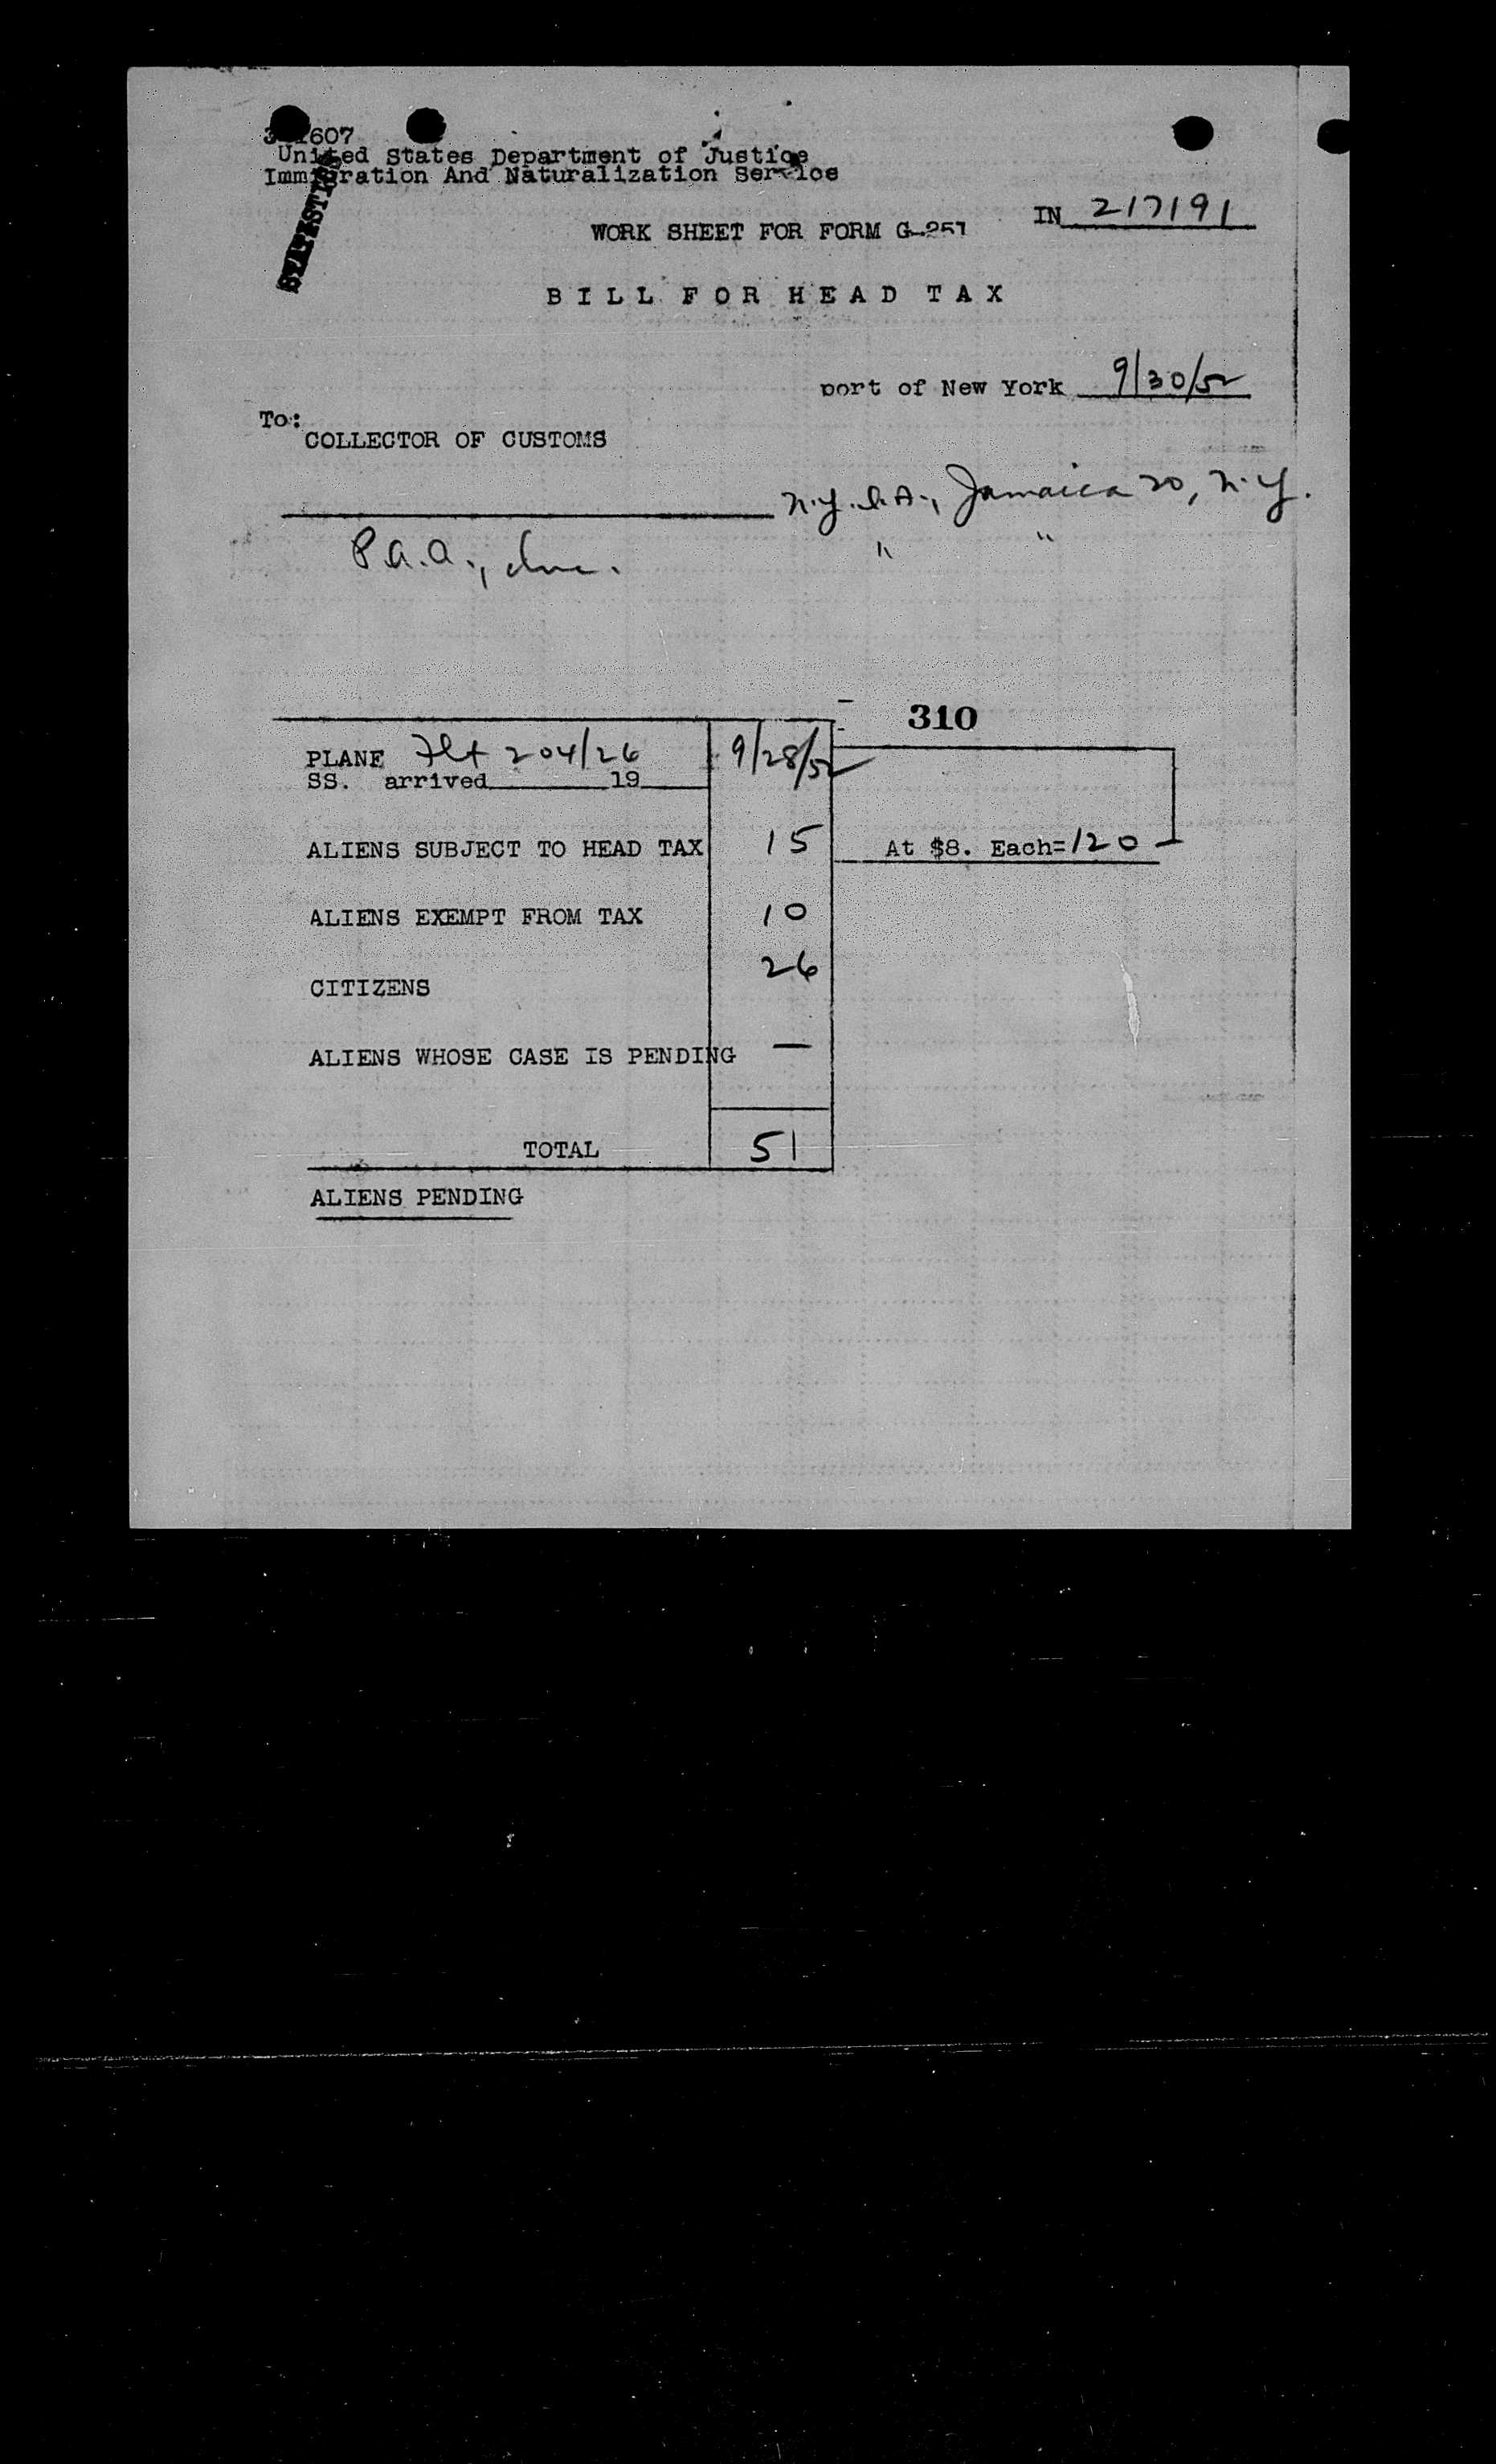 607
United States Department of Justice
Immigration And Naturalization Service
STATISTICS
IN 217191
WORK SHEET FOR FORM G-257
BILL FOR HEAD TAX
port of New York 9/30/52
To:
COLLECTOR OF CUSTOMS
N.Y.I.A., Jamaica 20, N.Y.
P.A.A., Inc. " "
310
PLANE Flt 204/26 9/28/52
SS. arrived 19
ALIENS SUBJECT TO HEAD TAX 15 At $8. Each=120
ALIENS EXEMPT FROM TAX 10
CITIZENS 26
ALIENS WHOSE CASE IS PENDING —
TOTAL 51
ALIENS PENDING